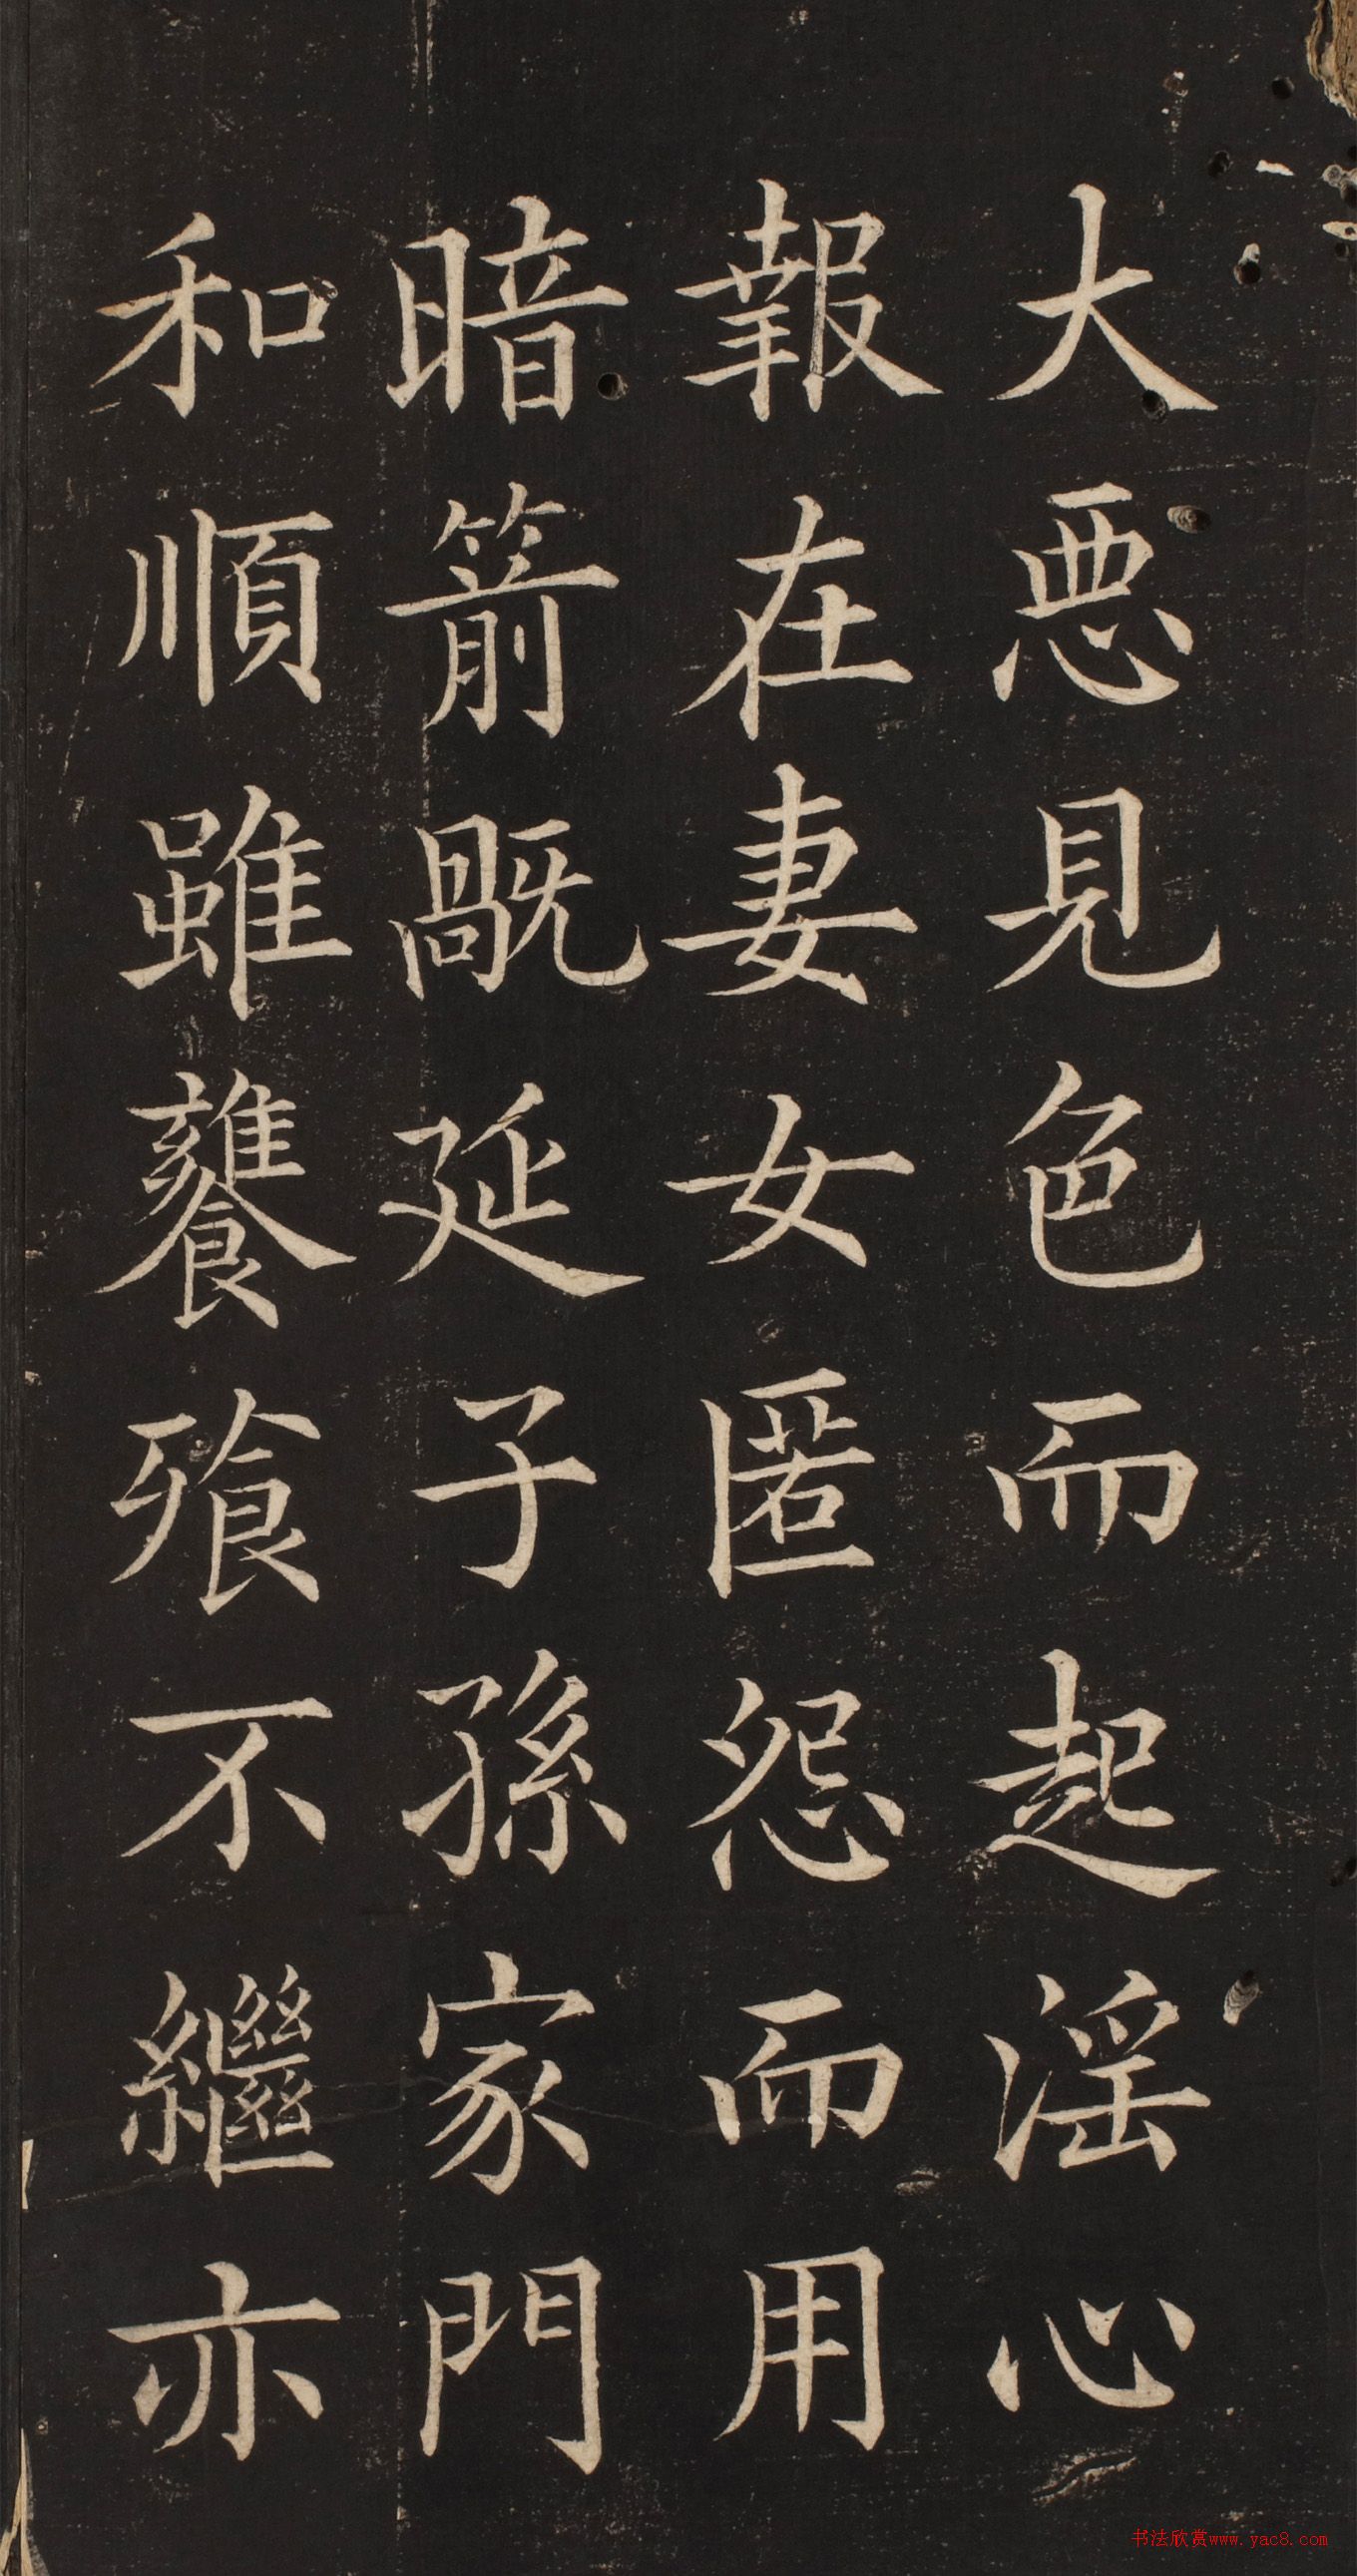 大惡見色而起淫心
報在妻女匿怨而用
暗箭禍延子孫家門
和順雖饔飧不繼亦
书法欣赏www.yac8.com